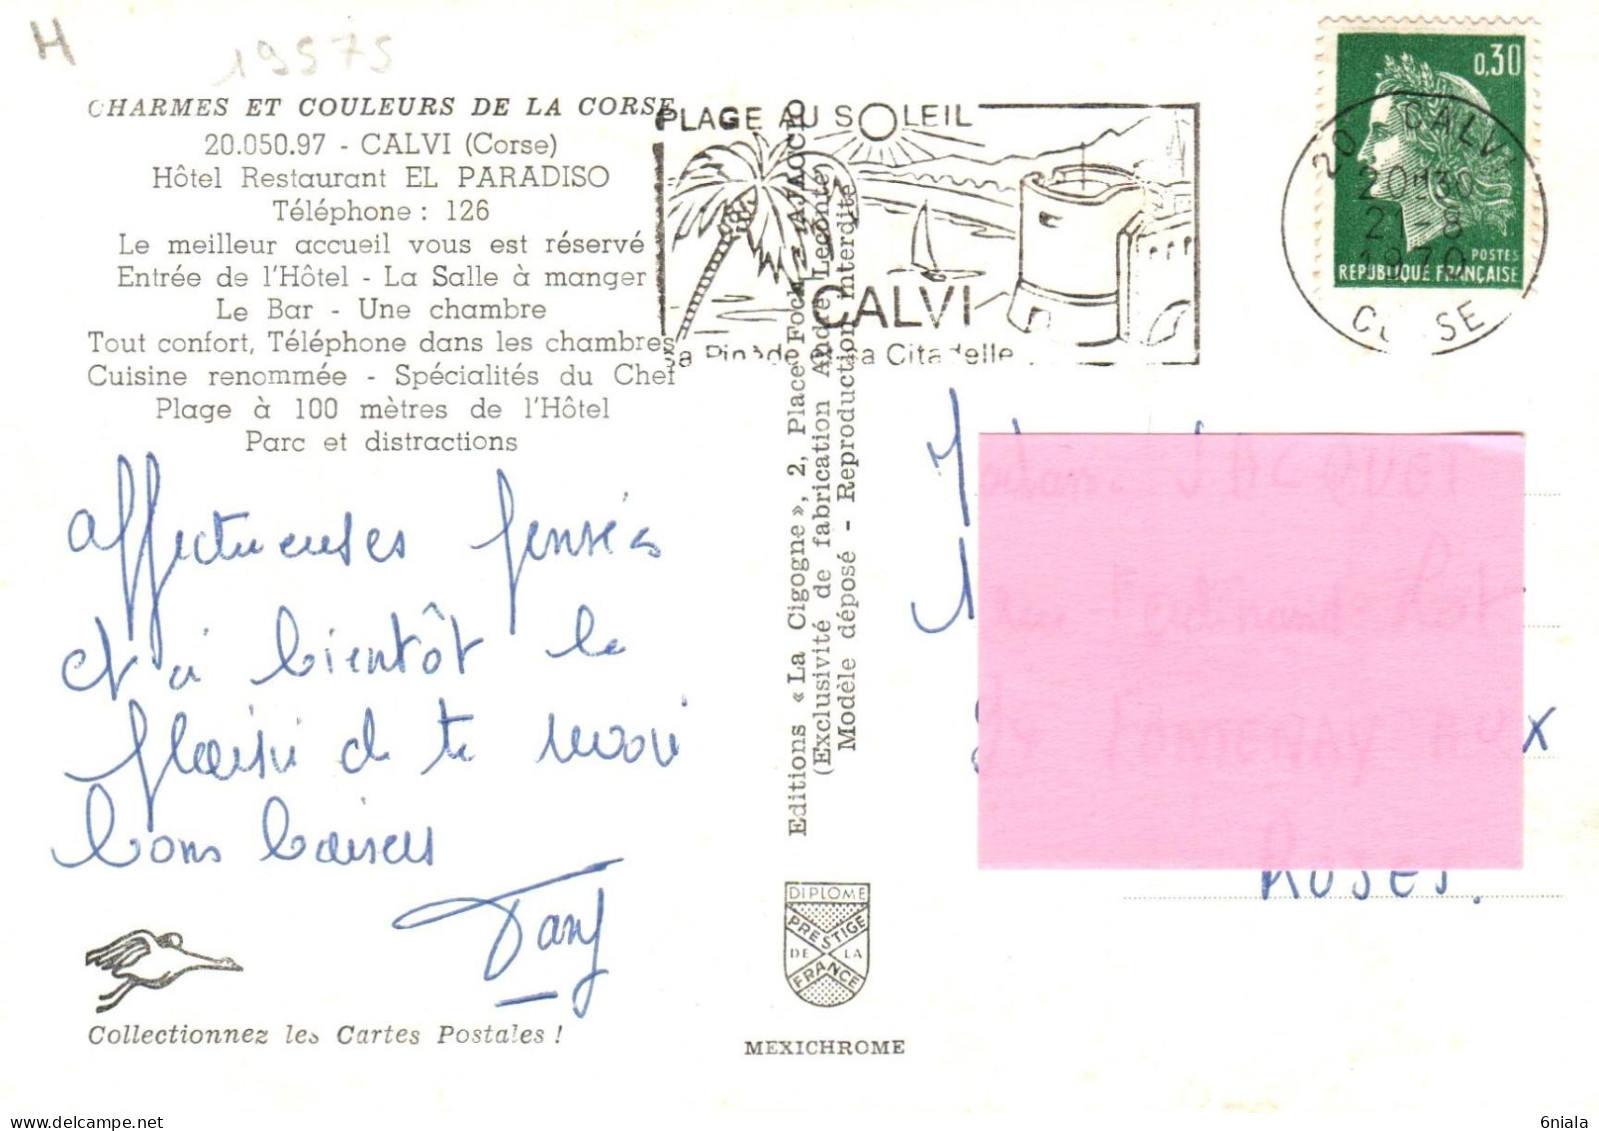 H
19575
CHARMES ET COULEURS DE LA CORSE
20.050.97 - CALVI (Corse)
Hôtel Restaurant EL PARADISO
Téléphone : 126
Le meilleur accueil vous est réservé
Entrée de l'Hôtel - La Salle à manger
Le Bar - Une chambre
Tout confort, Téléphone dans les chambres
Cuisine renommée - Spécialités du Chef
Plage à 100 mètres de l'Hôtel
Parc et distractions
affectueuses pensées
et à bientôt le
plaisir de te revoir
bons baisers
Collectionnez les Cartes Postales !
Editions « La Cigogne », 2, Place Foch - AJACCIO
(Exclusivité de fabrication André Leconte)
Modèle déposé - Reproduction interdite
DIPLOME
PRESTIGE
DE LA
FRANCE
MEXICHROME
PLAGE AU SOLEIL
CALVI
sa Pinède sa Citadelle
0,30
POSTES
REPUBLIQUE FRANÇAISE
20 CALVI
20H30
21-8
1970
CORSE
JACQUET
FONTENAY AUX
ROSES.
6niala